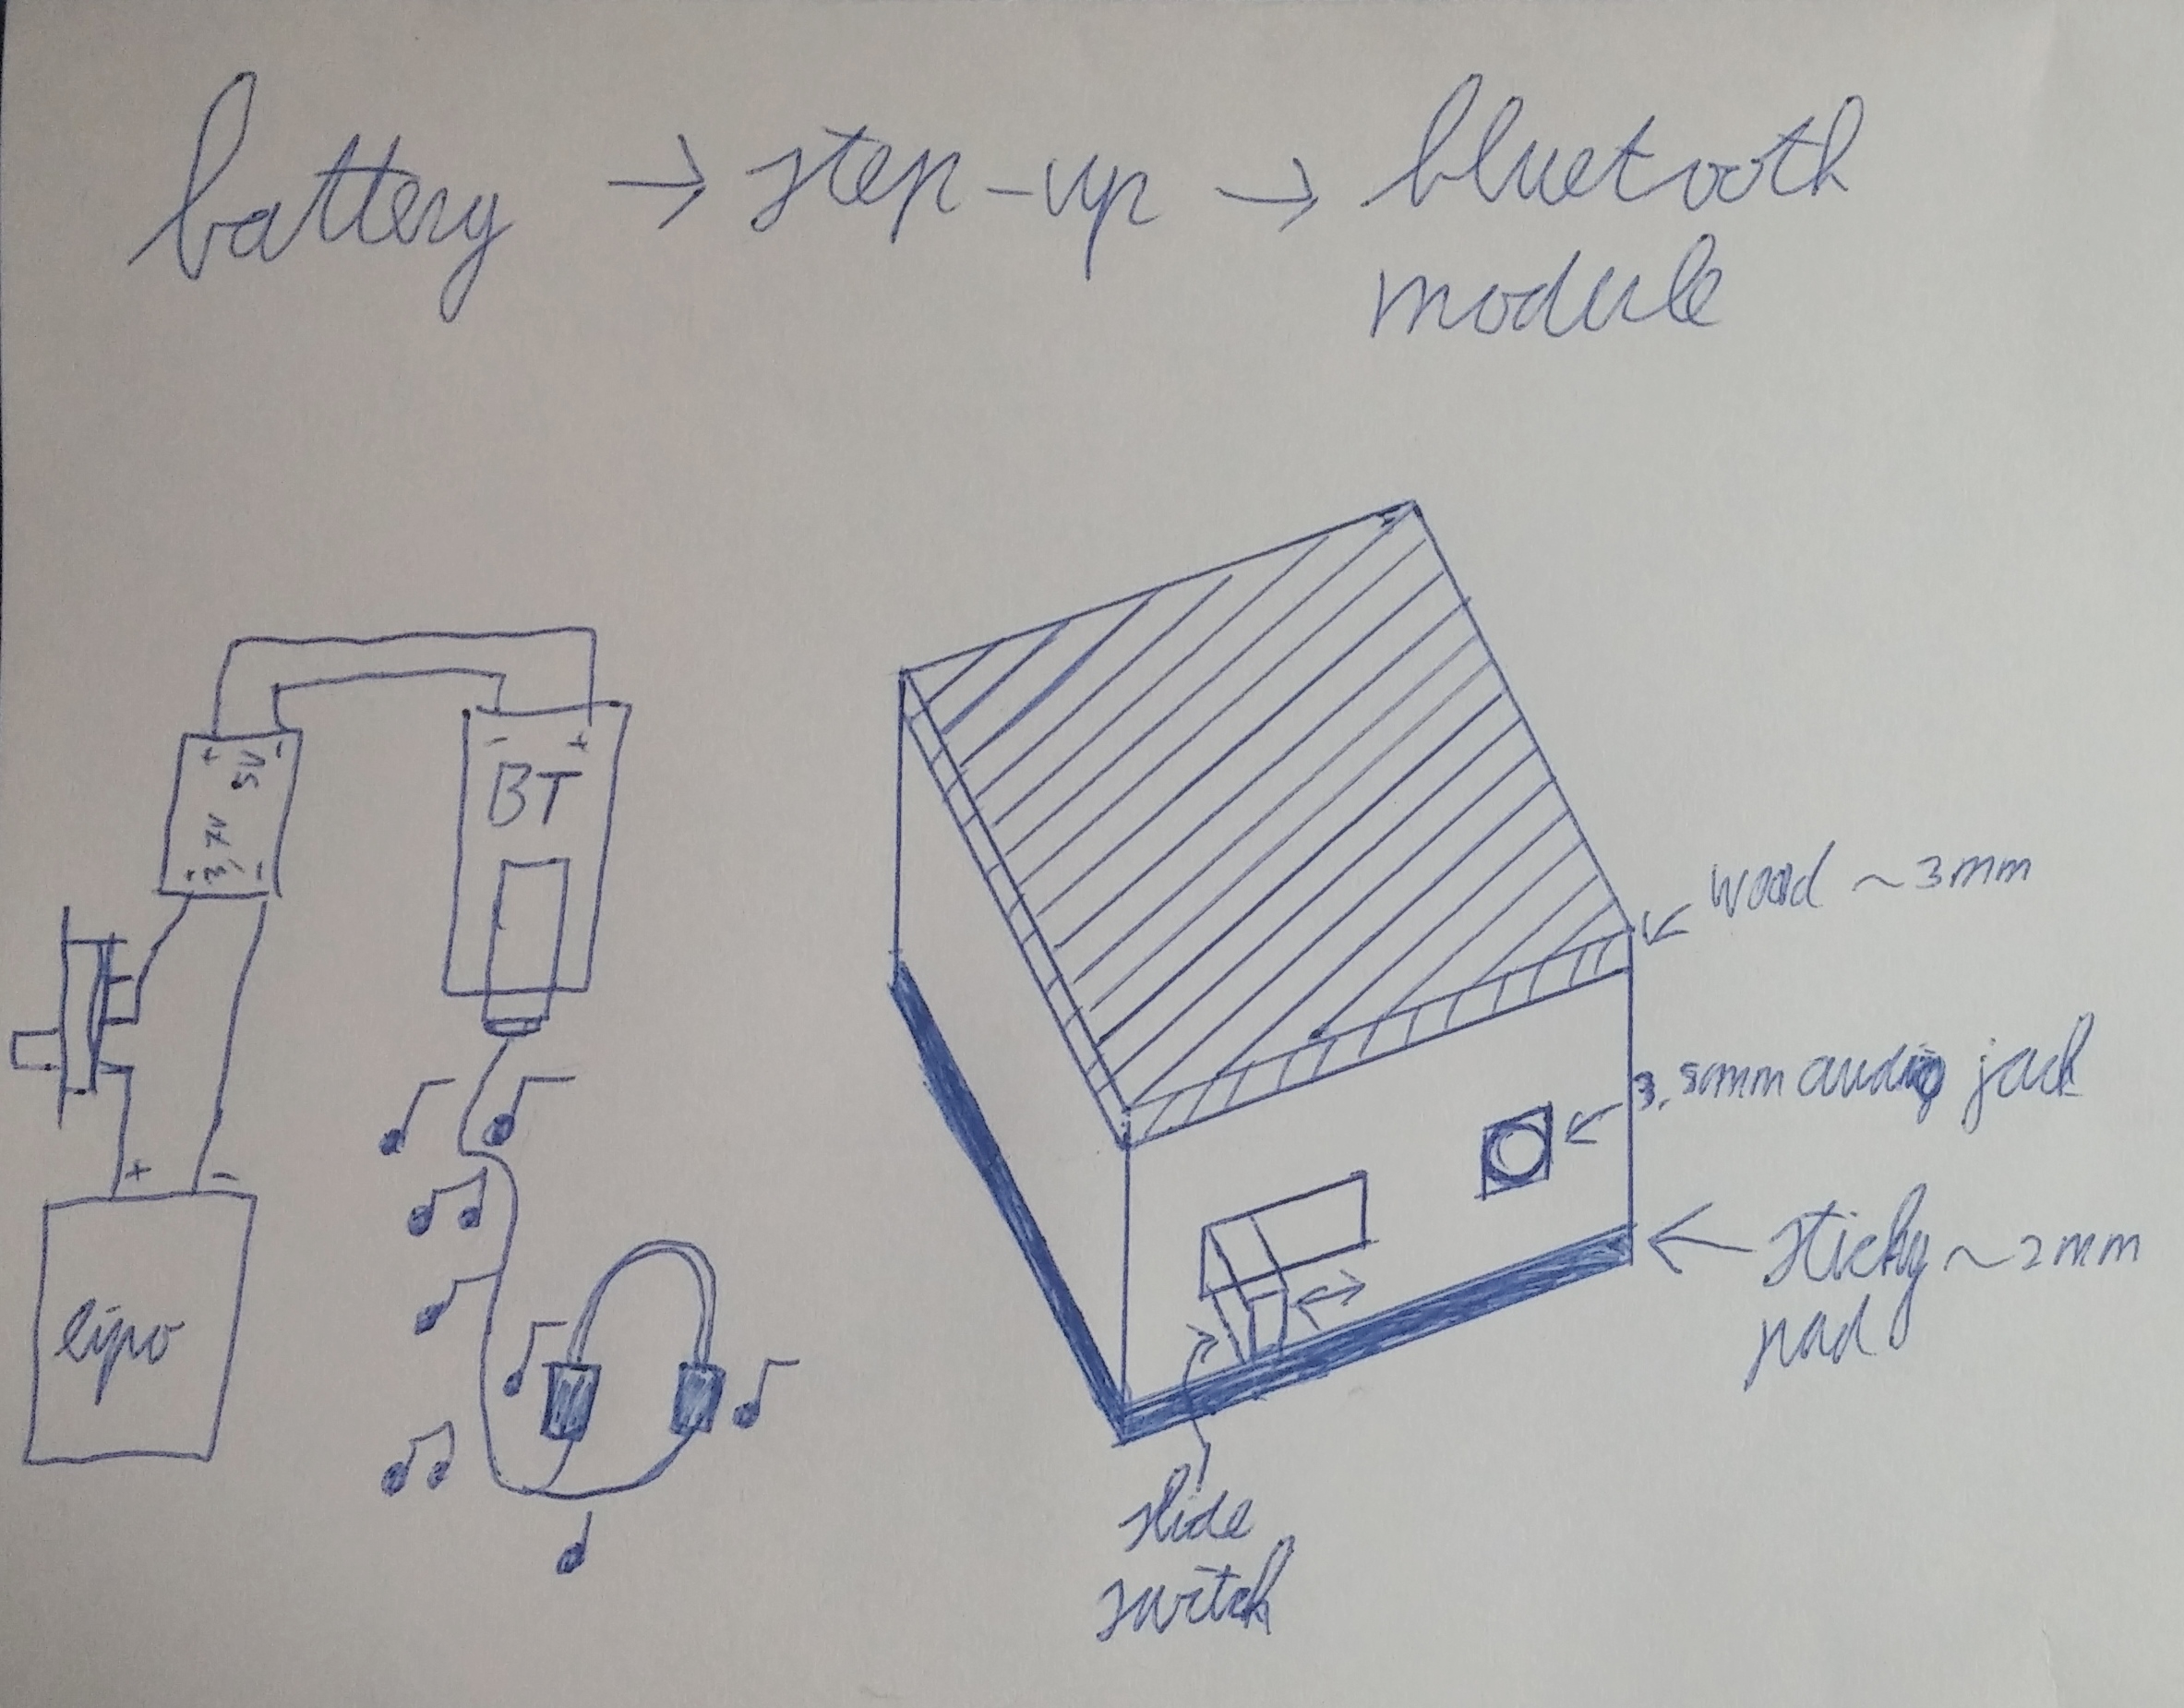 battery → step-up → bluetooth
module
+ 5V -
3,7V
+ -
- +
BT
+ -
lipo
wood ~3mm
3,5mm audio jack
sticky ~2mm
pad
slide
switch